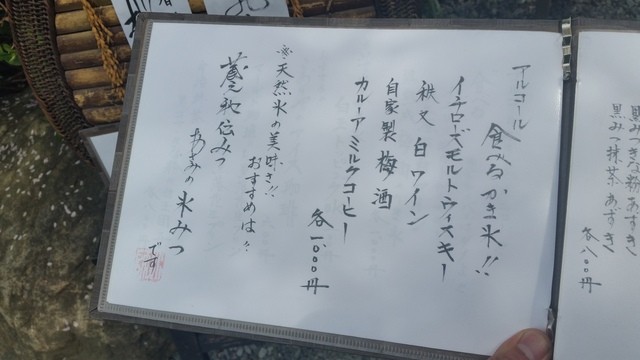 黒みつきな粉あずき
黒みつ抹茶あずき
各八〇〇円
アルコール
食べるかき氷!!
イチローズモルトウィスキー
秩父 白ワイン
自家製 梅酒
カルーアミルクコーヒー
各一、〇〇〇円
※天然氷の美味き!!
おすすめは
蔵元秘伝みつ
氷みつ
です